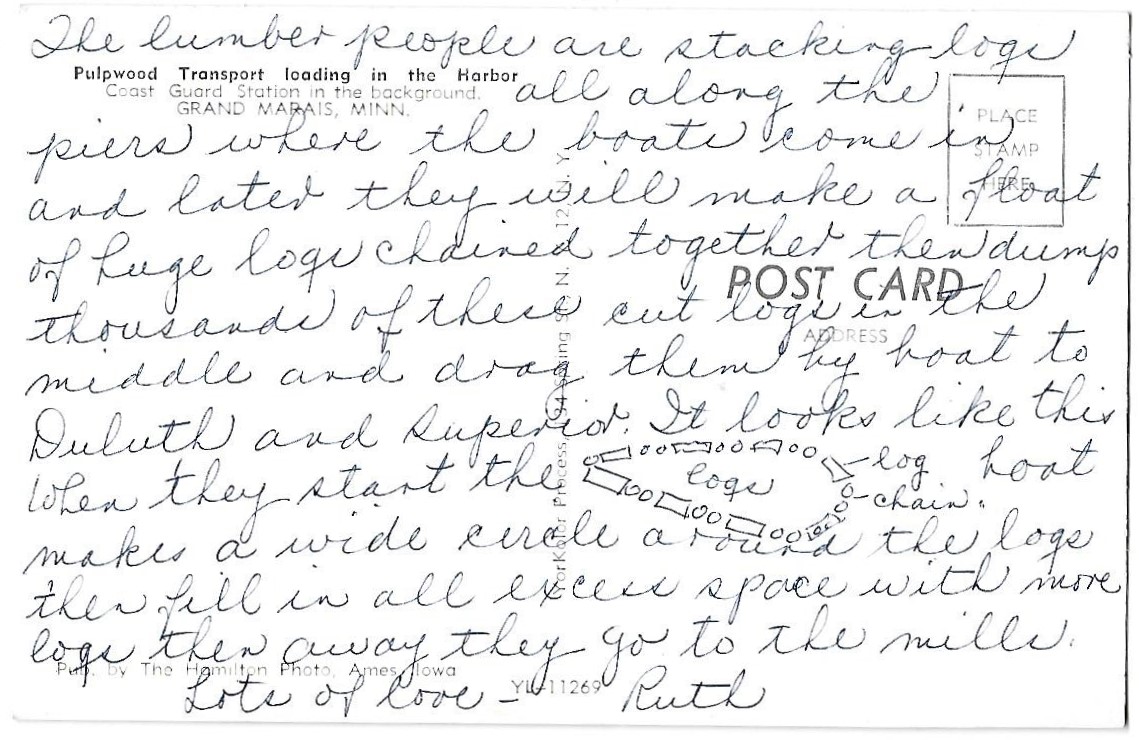 The lumber people are stacking logs
Pulpwood Transport loading in the Harbor
Coast Guard Station in the background.
GRAND MARAIS, MINN.
all along the
PLACE
STAMP
HERE
piers where the boats come in
and later they will make a float
of huge logs chained together then dump
POST CARD
thousands of these cut logs in the
ADDRESS
middle and drag them by boat to
Duluth and Superior. It looks like this
When they start the
logs
log
chain.
boat
makes a wide circle around the logs
then fill in all excess space with more
logs then away they go to the mills.
Pub. by The Hamilton Photo, Ames, Iowa
YL-11269
Lots of love - Ruth